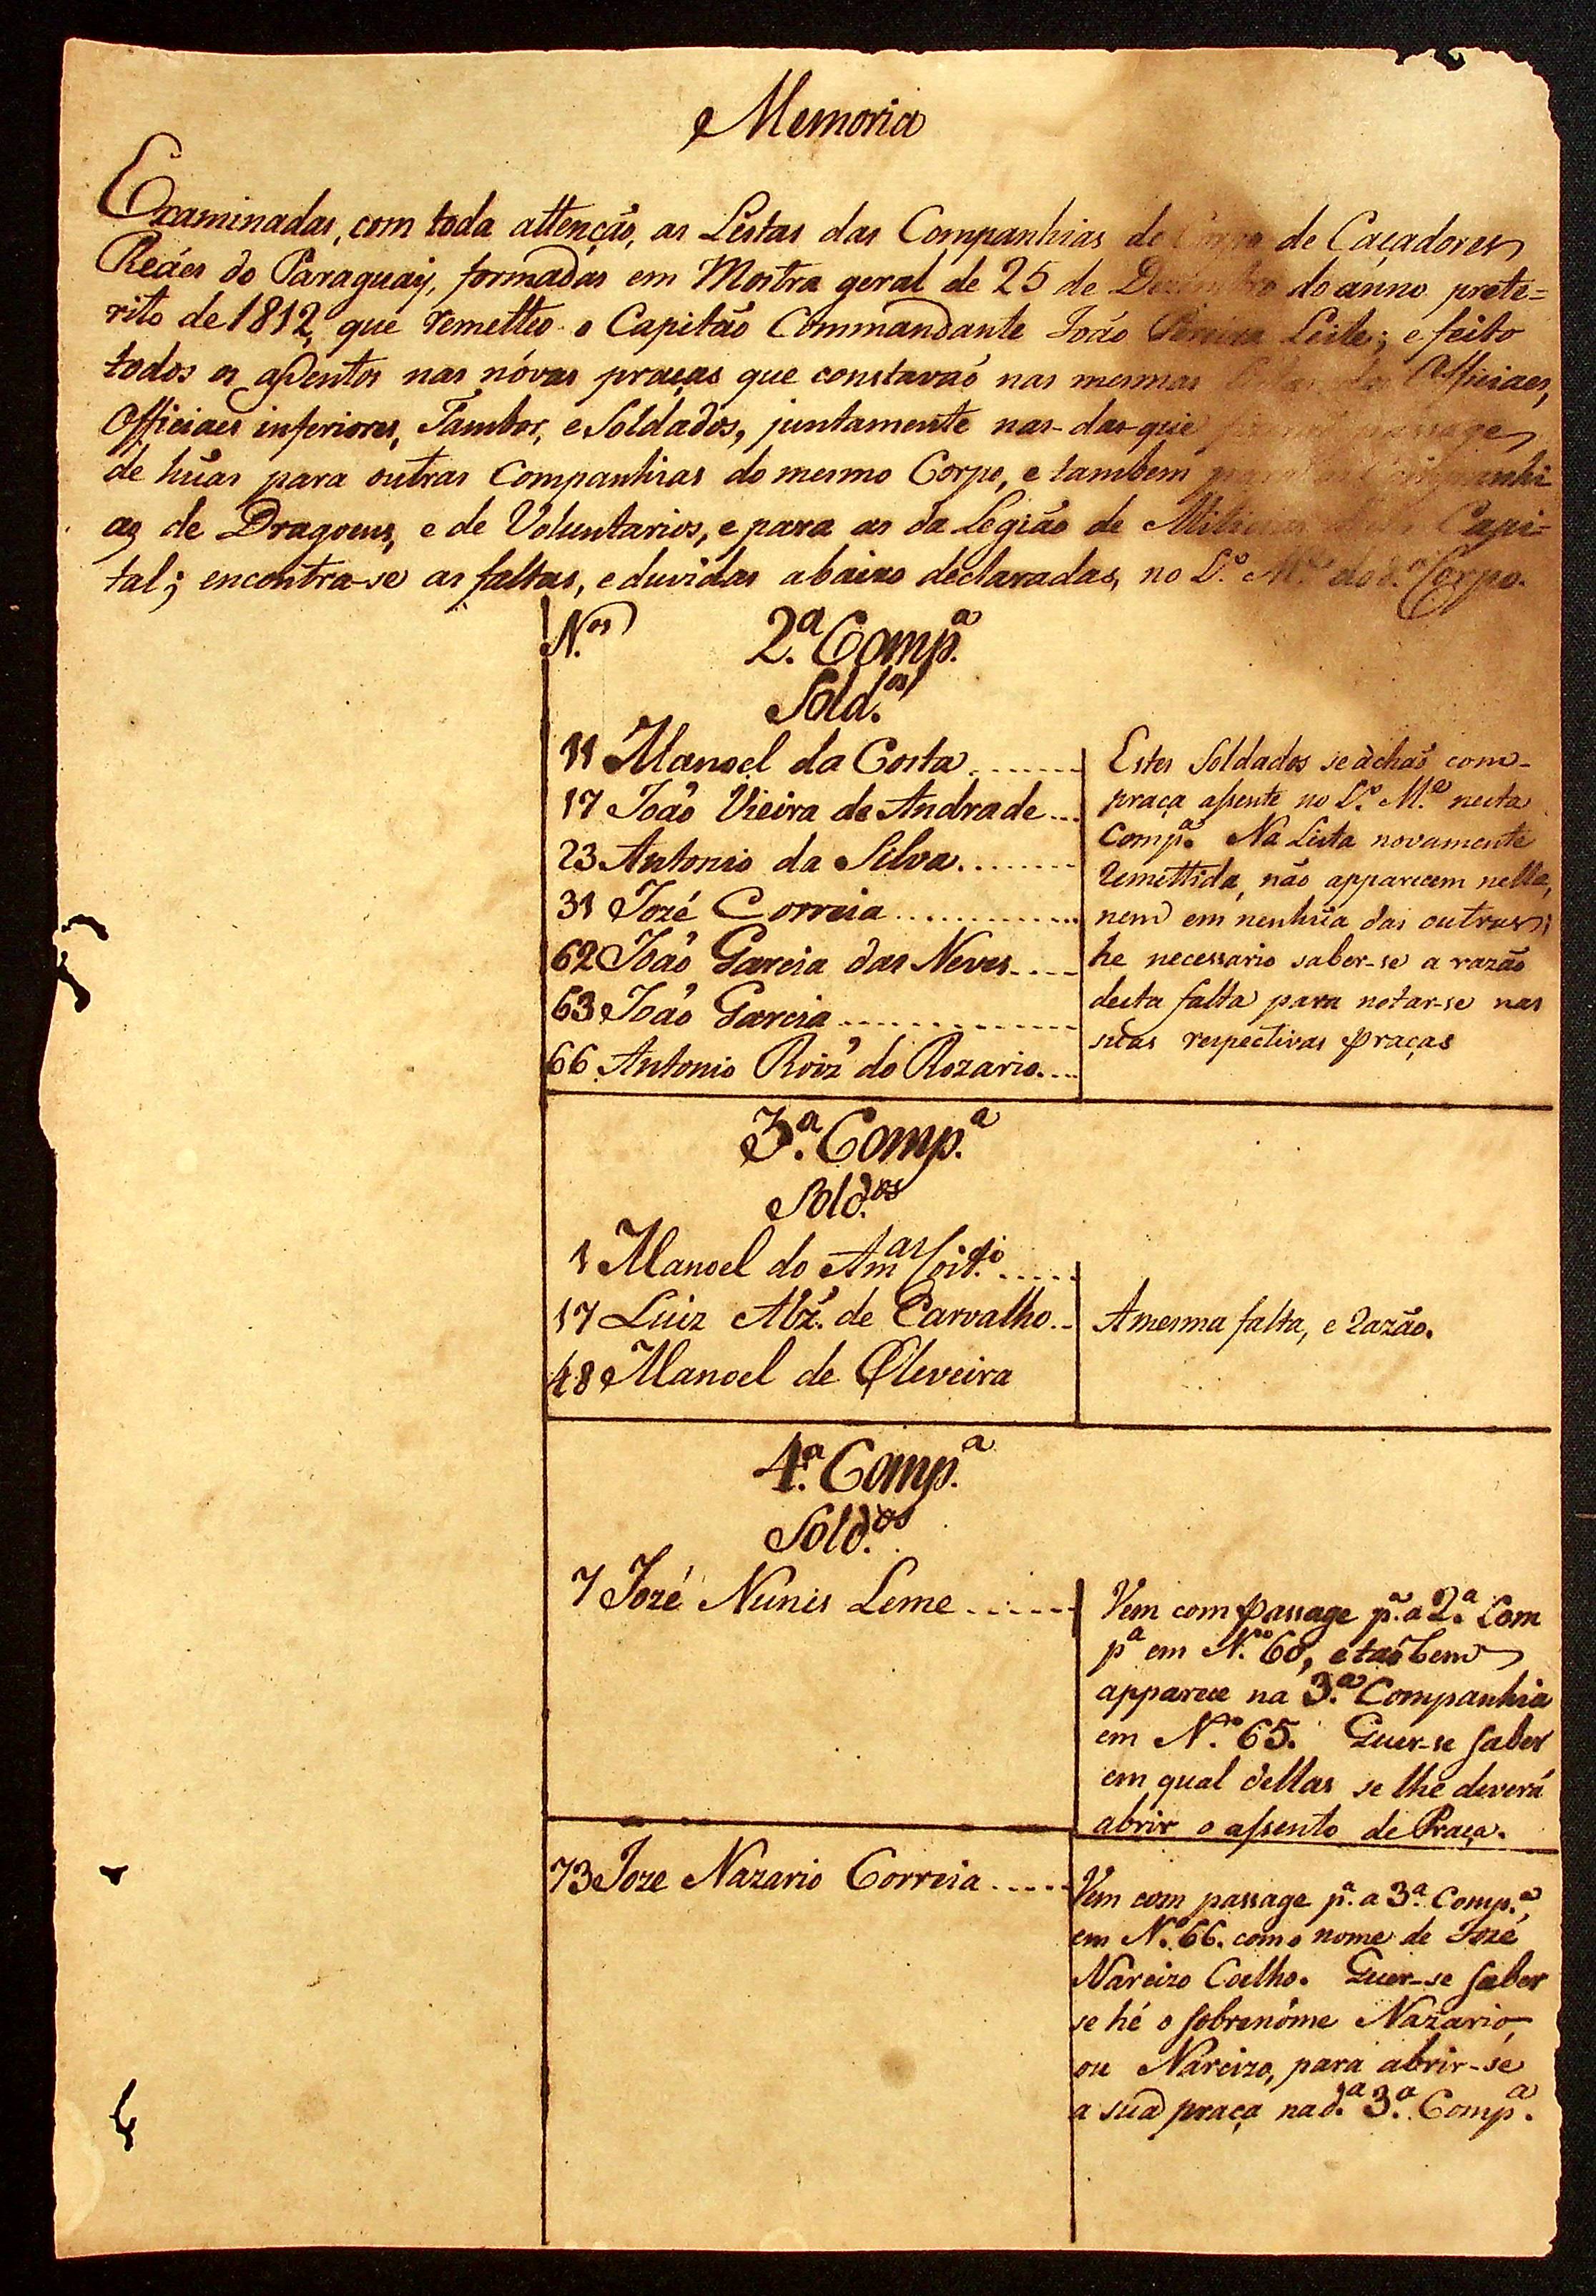 Memoria
Examinadas, com toda attenção, as Listas das Companhias do Corpo de Caçadores
Reáes do Paraguaÿ, formadas em Mostra geral de 25 de Dezembro do anno prete=
rito de 1812, que remetteo o Capitão Commandante João Pereira Leite; e feito
todos os assentos nas nóvas praças que constavaõ nas mesmas Officiaes,
Officiaes inferiores, Tambor, e Soldados, juntamente nas das que passage
de huãs para outras Companhias do mesmo Corpo, e tambem para as Companhi
as de Dragoens, e de Voluntarios, e para as da Legião de Milicias Capi=
tal; encontra-se as faltas, e duvidas abaixo declaradas, no L.º M.e do d.º Corpo.
N.os 2.ª Comp.ª
Sold.os
11 Manoel da Costa
17 João Vieira de Andrade
23 Antonio da Silva
31 Jozé Correia
62 João Garcia das Neves
63 João Garcia
66 Antonio Roiz' do Rozario
Estes Soldados se achaõ com-
praça assente no L.º M.e nesta
Comp.ª Na Lista novamente
remettida, não apparecem nella,
nem em nenhuã das outras;
he necessario saber-se a razão
desta falta para notar-se nas
suas respectivas praças
3.ª Comp.ª
Sold.os
1 Manoel do Am.ar
17 Luiz Alz'. de Carvalho
48 Manoel de Oliveira
A mesma falta, e razão.
4.ª Comp.ª
Sold.os
7 Jozé Nunes Leme
Vem com passage p.ª a 2.ª Com
p.ª em N.º 60, e taõbem
apparece na 3.ª Companhia
em N.º 65. Quer-se saber
em qual dellas se lhe deverá
abrir o assento de Praça.
73 Joze Nazario Correia
Vem com passage p.ª a 3.ª Comp.ª,
em N.º 66. com o nome de Jozé
Narcizo Coelho. Quer-se saber
se hé o sobrenóme Nazario,
ou Narcizo, para abrir-se
a sua praça na d.ª 3.ª Comp.ª